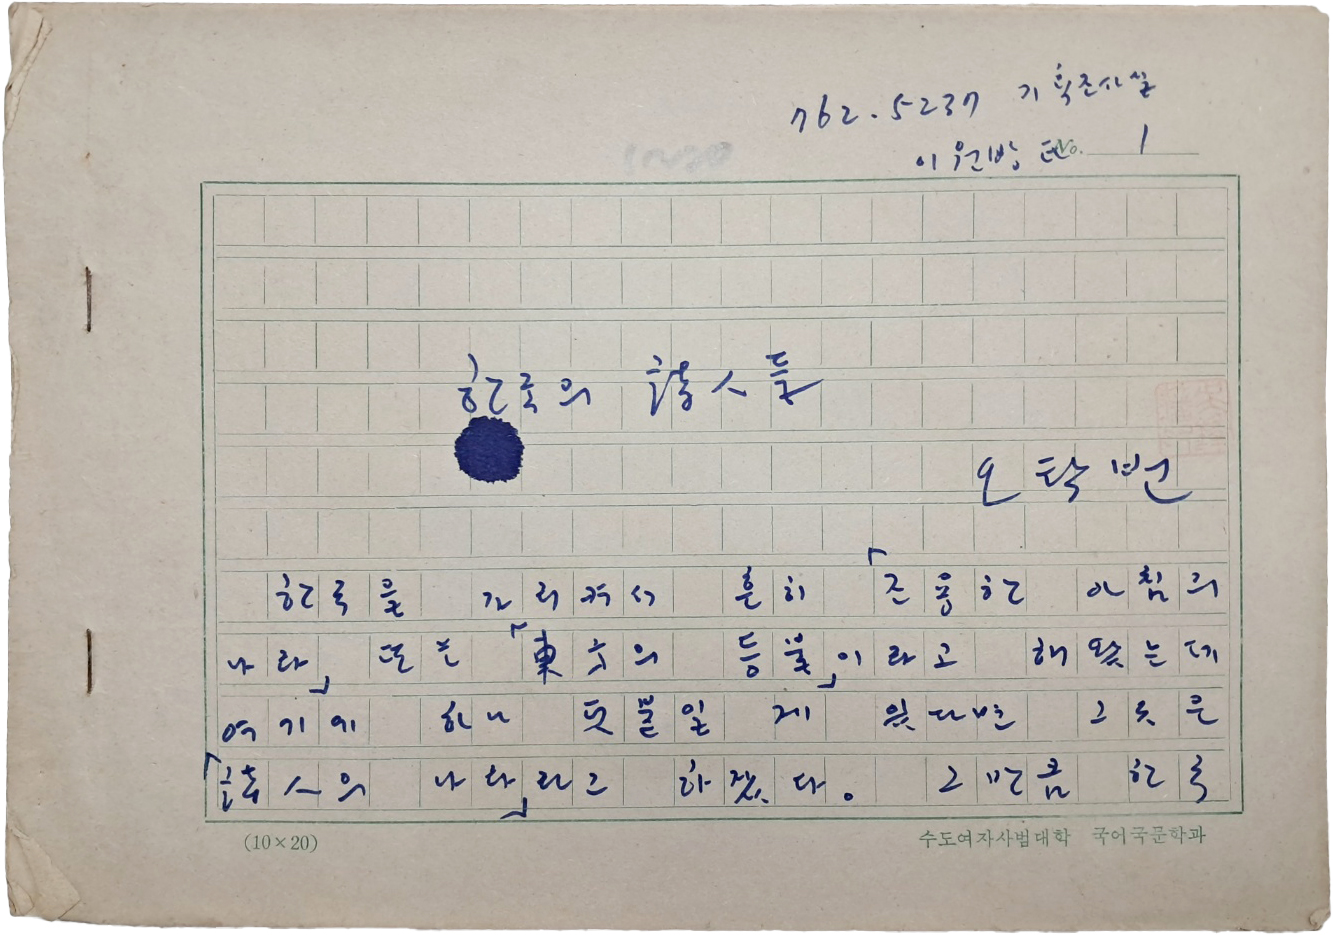 762.5237 기획조사실
이원방
No. 1
한국의 詩人들
오탁번
한국을 가리켜서 흔히 「조용한 아침의
나라」 또는 「東方의 등불」이라고 해 왔는데
여기에 하나 덧붙일 게 있다면 그것은
「詩人의 나라」라고 하겠다. 그만큼 한국
(10×20)
수도여자사범대학 국어국문학과